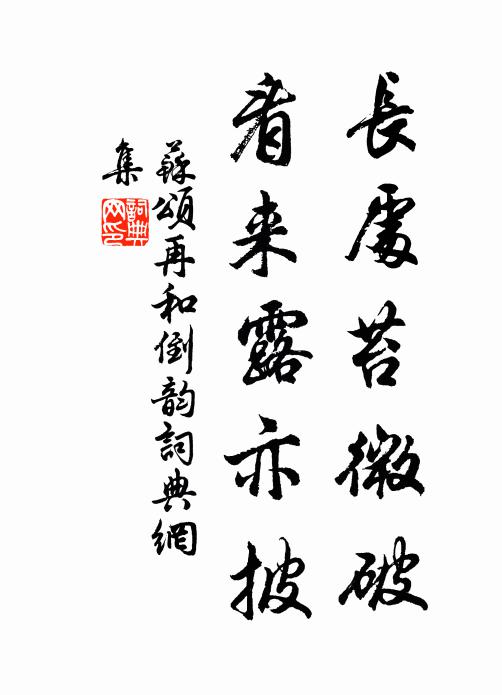 長處苔微破
看来露亦披
蘇頌再和倒韵詞典網
集
詞典
网印